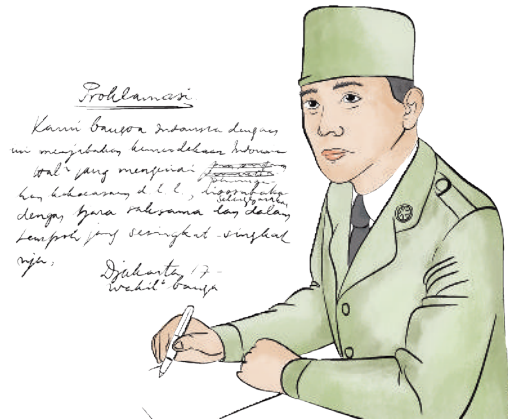 Proklamasi
Kami bangsa Indonesia dengan
ini menjatakan kemerdekaan Indonesia
Hal² jang mengenai
kekoeasaan d.l.l.,
diselenggarakan
dengan tjara saksama dan dalam
tempoh jang sesingkat-singkat
nja.
Djakarta, 17 -
wakil² bangsa